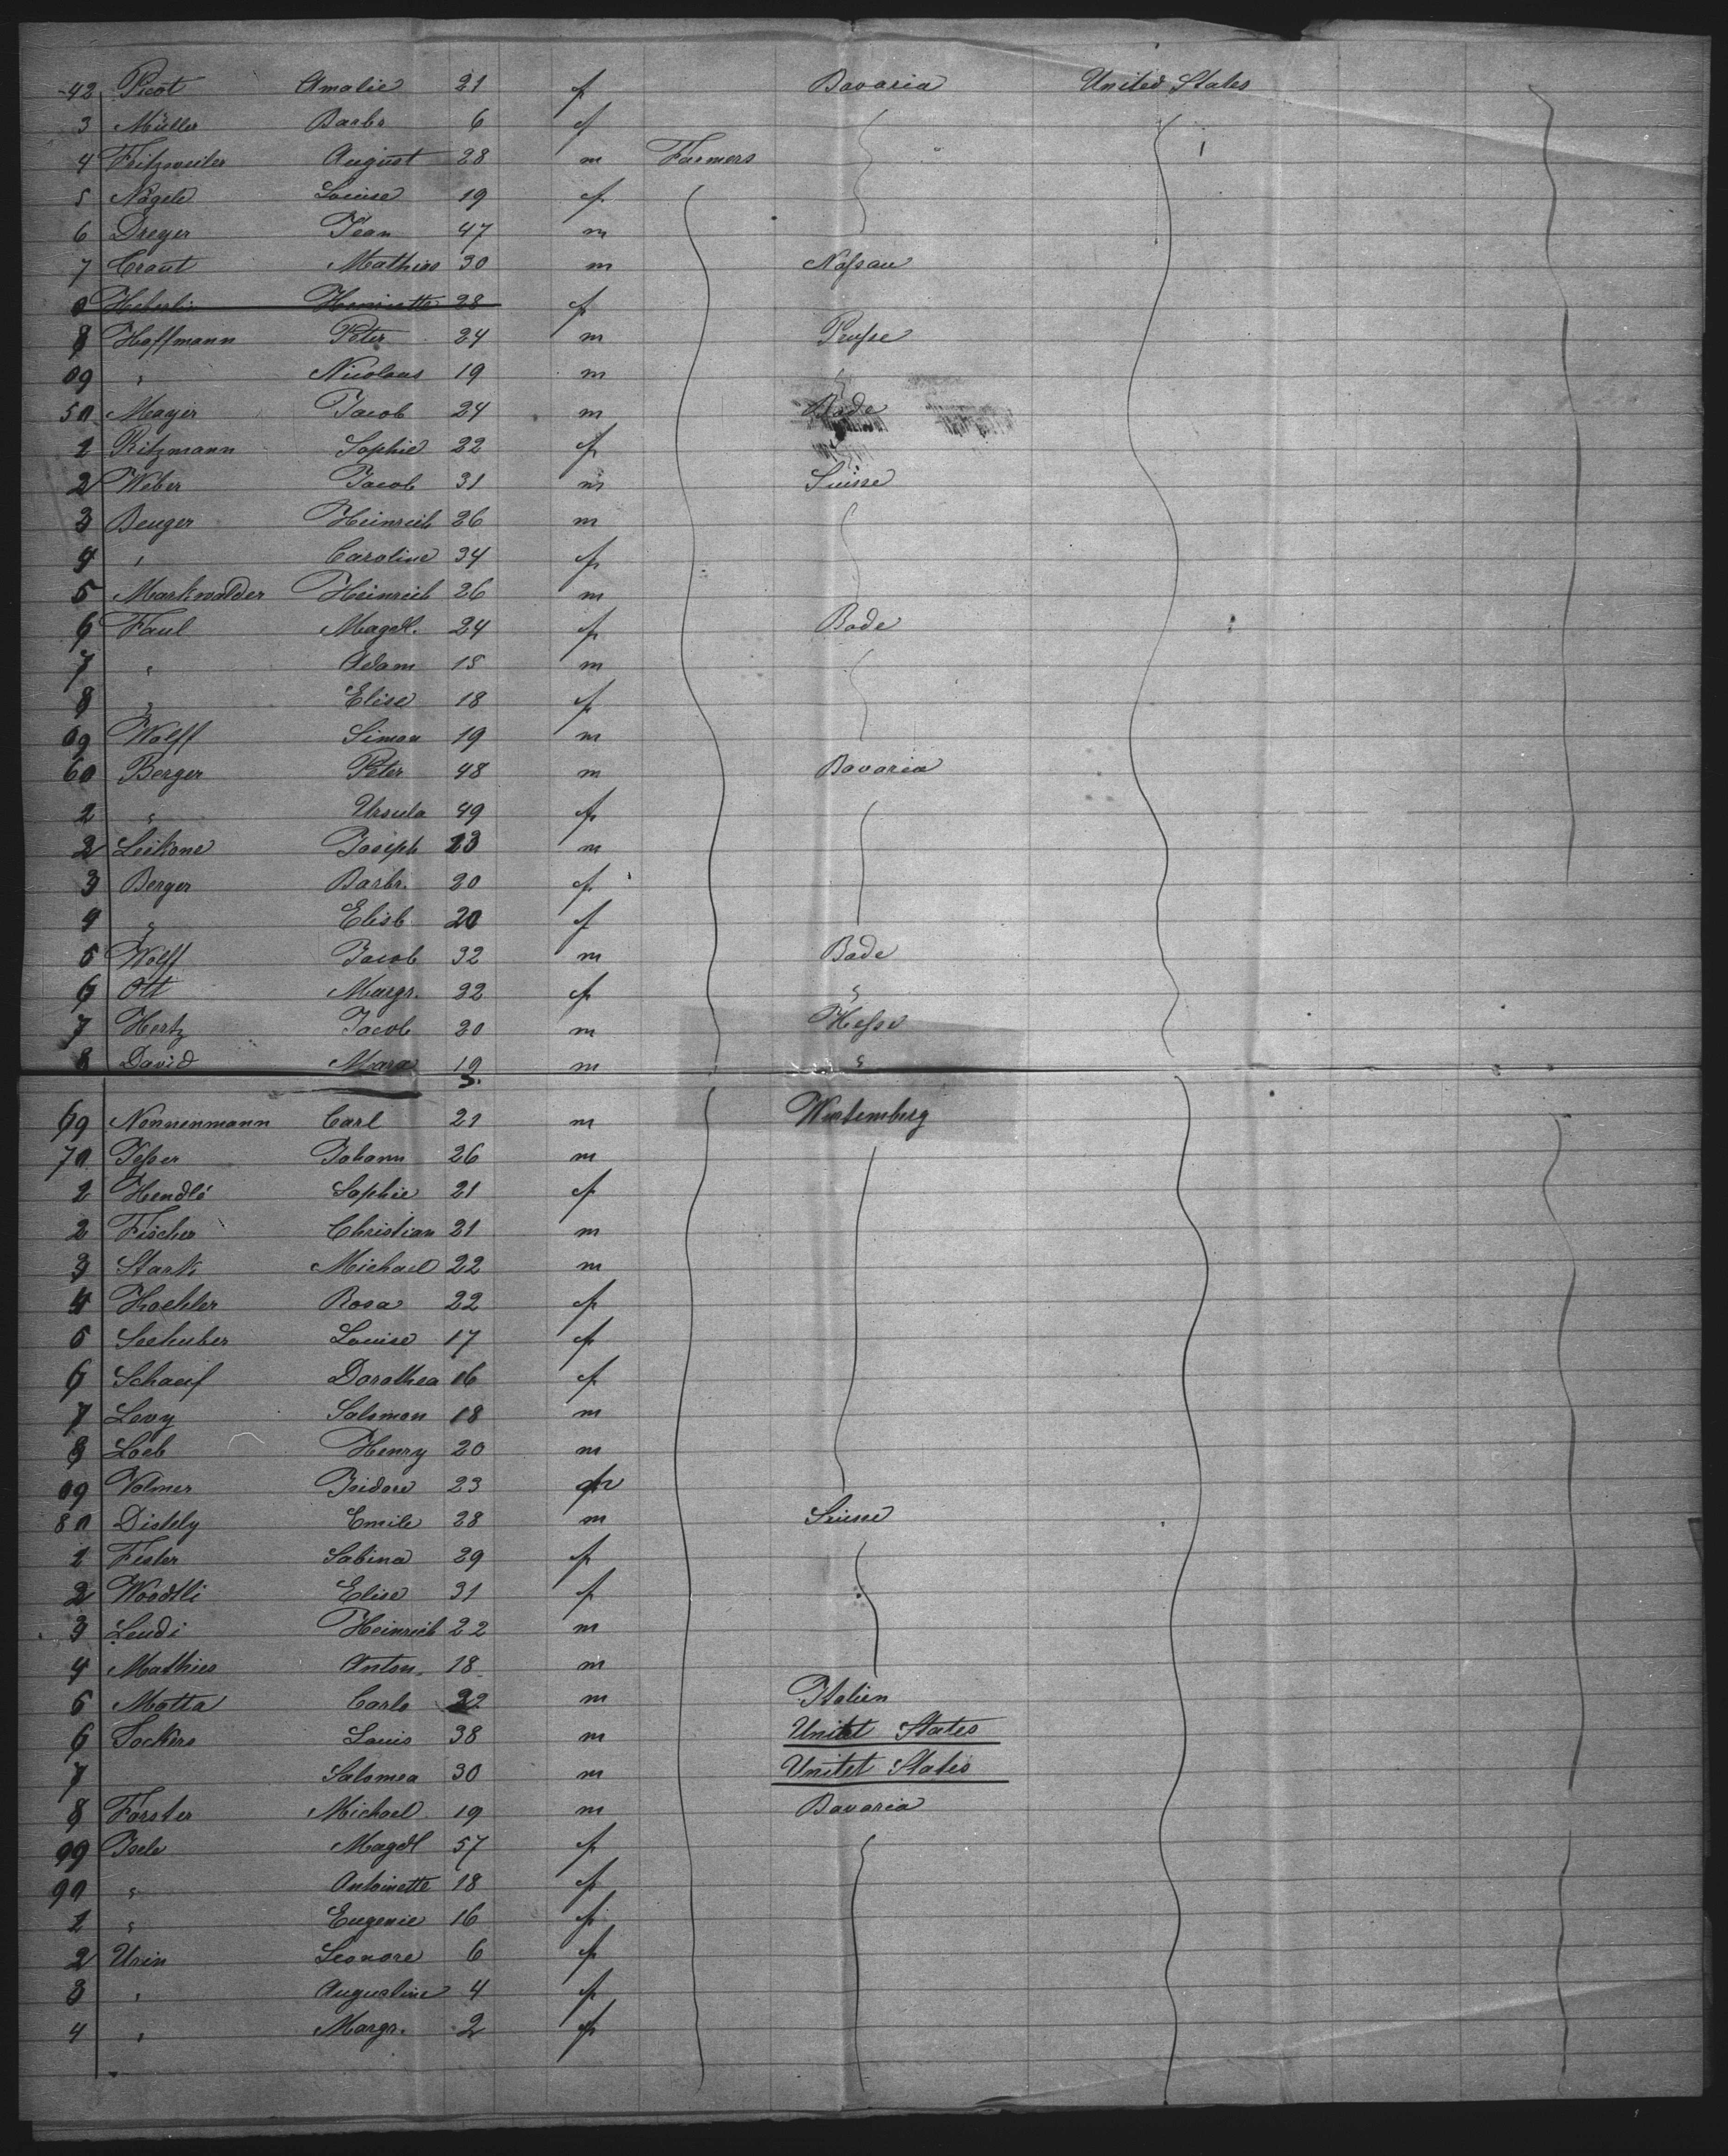 42 Picot Amalie 21 f Bavaria United States
3 Müller Barbr 6 f
4 Fritzweiler August 28 m Farmers "
5 Nägele Louise 19 f
6 Dreyer Jean 47 m
7 Craut Mathias 30 m Nassau
Heberlin Henriette 28 f
8 Hoffmann Peter 24 m Prusse
09 " Nicolaus 19 m "
50 Mayer Jacob 24 m Bade
1 Ritzmann Sophie 22 f "
2 Weber Jacob 31 m Suisse
3 Benger Heinrich 26 m
4 " Caroline 34 f
5 Markwalder Heinrich 26 m
6 Faul Magdl. 24 f Bade
7 " Adam 15 m
8 " Elise 18 f
09 Wolff Simon 19 m
60 Berger Peter 48 m Bavaria
2 " Ursula 49 f
2 Leikone Joseph 23 m
3 Berger Barbr. 20 f
4 " Elisb. 20 f
5 Wolff Jacob 32 m Bade
6 Ott Margr. 22 f "
7 Hertz Jacob 20 m Hesse
8 David Marx 19 m "
69 Nonnenmann Carl 21 m Wurtemberg
70 Jesser Johann 26 m
2 Hendlé Sophie 21 f
2 Fischer Christian 21 m
3 Stark Michael 22 m
4 Koehler Rosa 22 f
5 Seehuber Louise 17 f
6 Schaeif Dorothea 16 f
7 Levy Salomon 18 m
8 Loeb Henry 20 m
09 Volmer Isidore 23 m
80 Distely Emile 28 m Suisse
1 Fister Sabina 29 f
2 Woodtli Elise 31 f
3 Leudi Heinrich 22 m
4 Mathies Anton 18 m
5 Motta Carlo 32 m Italien
6 Sockers Louis 38 m Unitet States
7 Salomea 30 m Unitet States
8 Forster Michael 19 m Bavaria
99 Isele Magdl 57 f
90 " Antoinette 18 f
1 " Eugenie 16 f
2 Urin Leonore 6 f
3 " Augustine 4 f
4 " Margr. 2 f